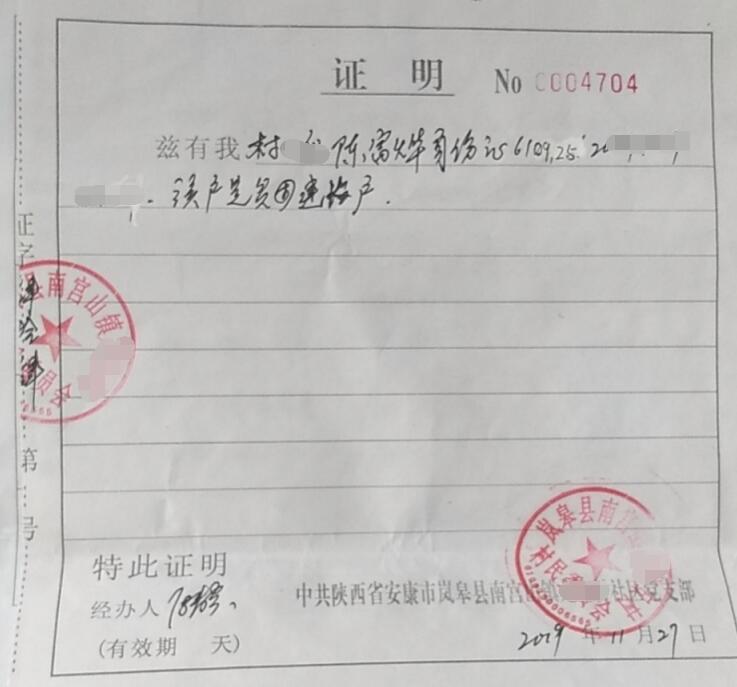 证 明 No 0004704
兹有我村 陈富烨身份证610925 20
该户是贫困建档户.
证字 第 号
县南宫山镇
员会
特此证明
经办人
(有效期 天)
中共陕西省安康市岚皋县南宫 社区党支部
岚皋县南宫
村民 会
2019年11月27日